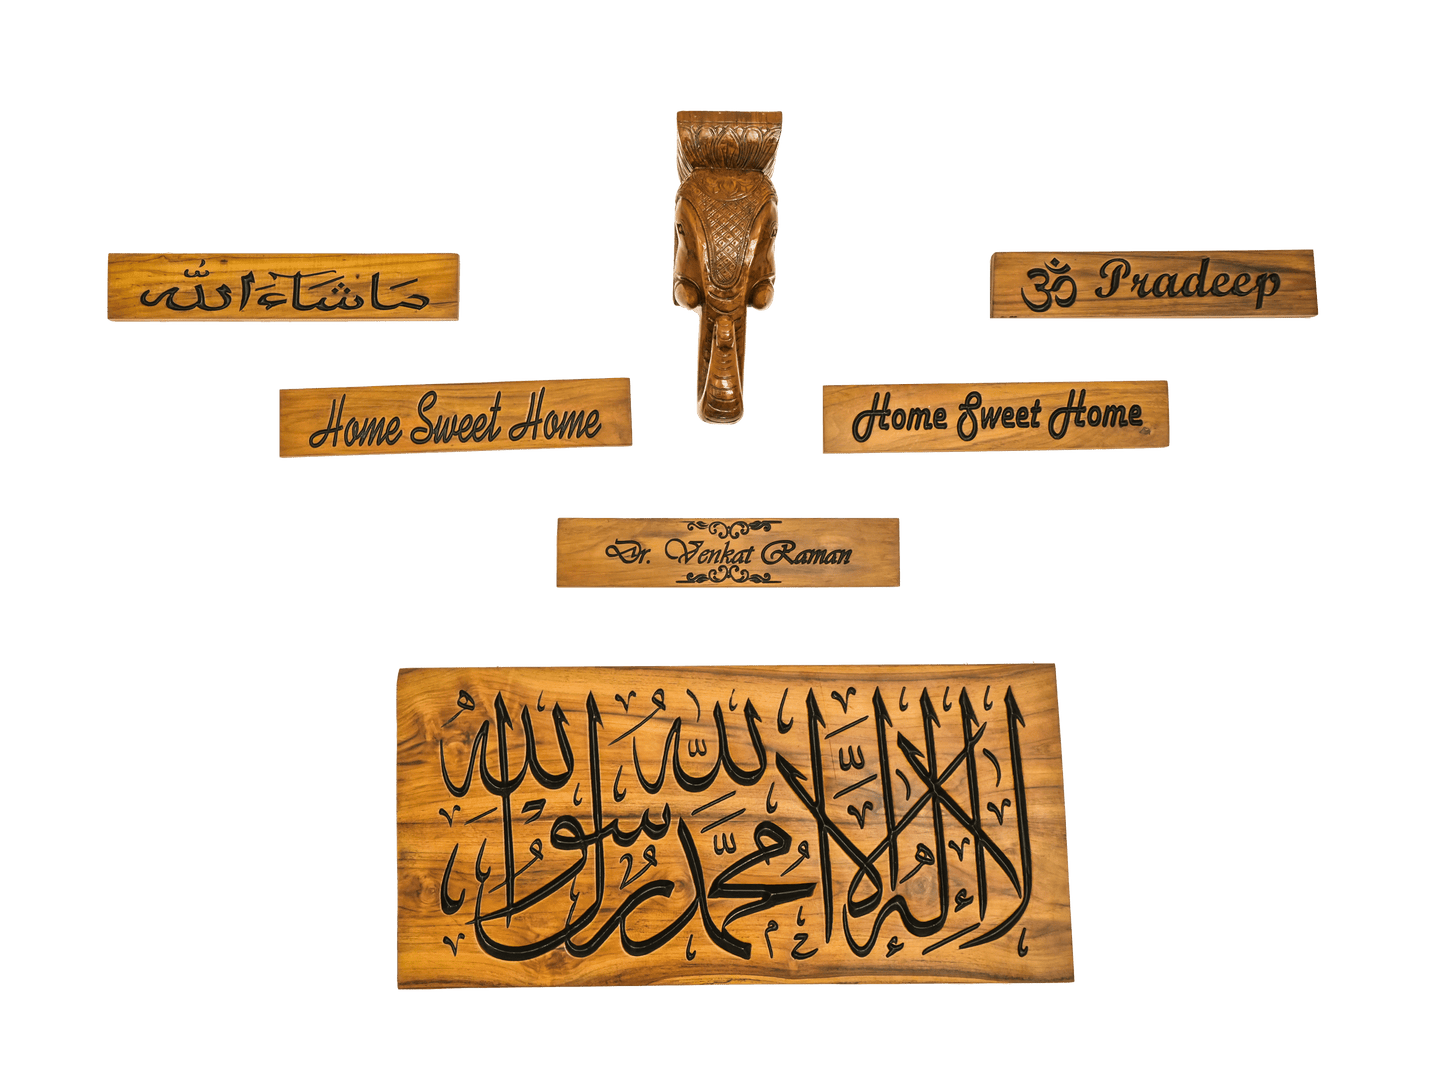 مَا شَاءَ اللّٰه
ॐ Pradeep
Home Sweet Home
Home Sweet Home
Dr. Venkat Raman
لا إله إلا الله محمد رسول الله